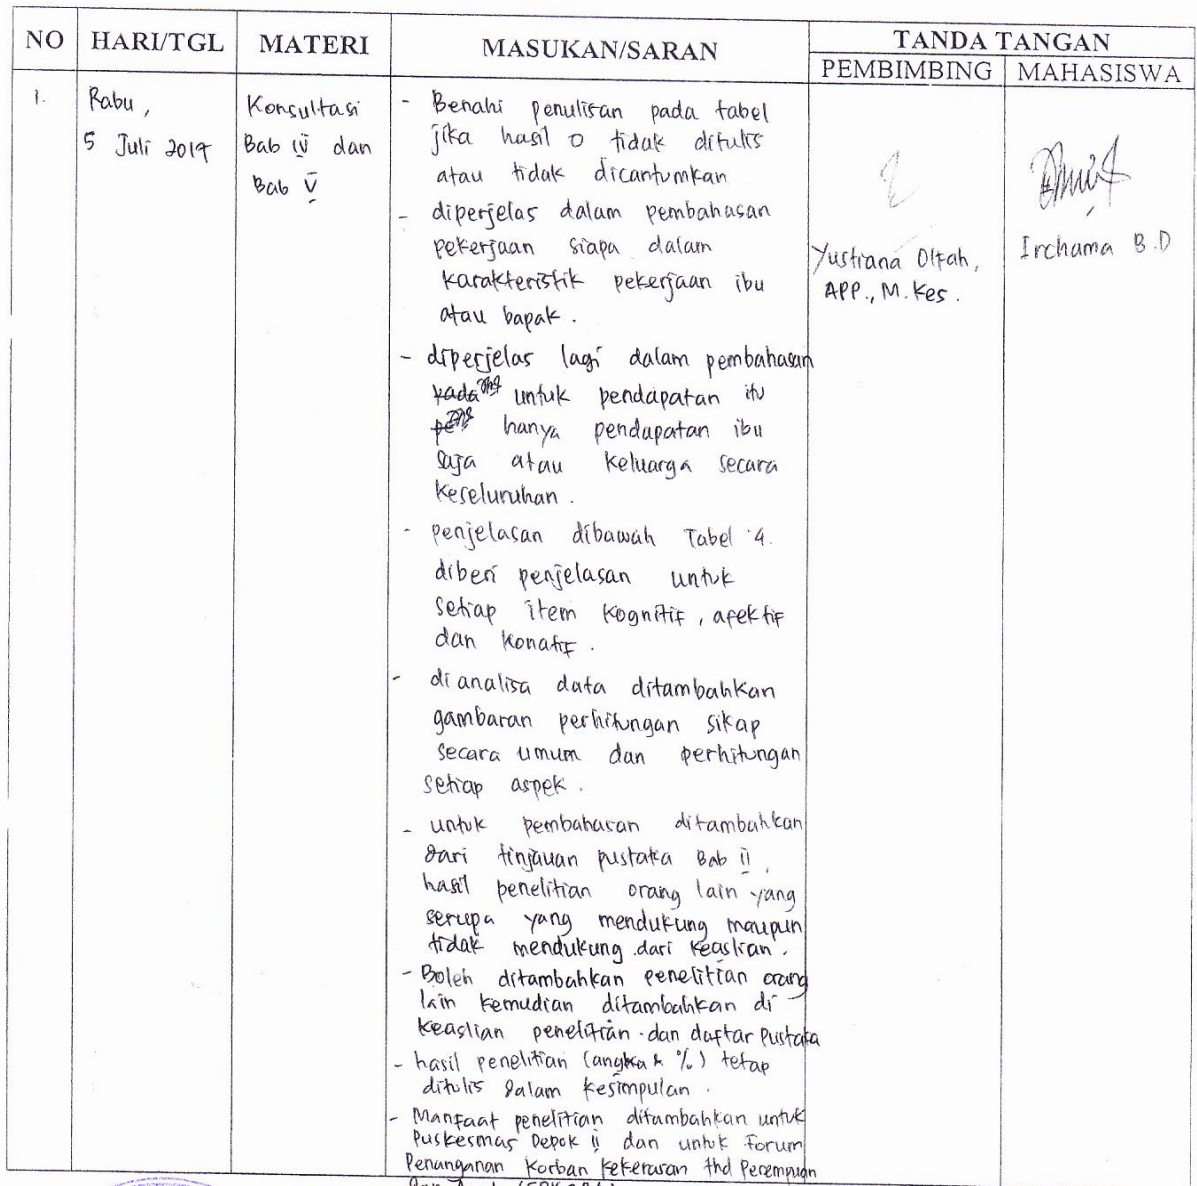 NO HARI/TGL MATERI MASUKAN/SARAN TANDA TANGAN
PEMBIMBING MAHASISWA
1. Rabu,
5 Juli 2017
Konsultasi
Bab IV dan
Bab V
- Benahi penulisan pada tabel
jika hasil 0 tidak ditulis
atau tidak dicantumkan
- diperjelas dalam pembahasan
pekerjaan siapa dalam
karakteristik pekerjaan ibu
atau bapak.
- diperjelas lagi dalam pembahasan
untuk pendapatan itu
hanya pendapatan ibu
saja atau keluarga secara
keseluruhan.
- penjelasan dibawah Tabel 4.
diberi penjelasan untuk
setiap item kognitif, afektif
dan konatif.
- di analisa data ditambahkan
gambaran perhitungan sikap
secara umum dan perhitungan
setiap aspek.
- untuk pembahasan ditambahkan
dari tinjauan pustaka Bab II,
hasil penelitian orang lain yang
serupa yang mendukung maupun
tidak mendukung dari keaslian.
- Boleh ditambahkan penelitian orang
lain kemudian ditambahkan di
keaslian penelitian dan daftar pustaka
- hasil penelitian (angka & %) tetap
ditulis dalam kesimpulan.
- Manfaat penelitian ditambahkan untuk
Puskesmas Depok II dan untuk Forum
Penanganan Korban Kekerasan thd Perempuan
Yustiana Olfah,
APP., M.Kes.
Irchama B.D